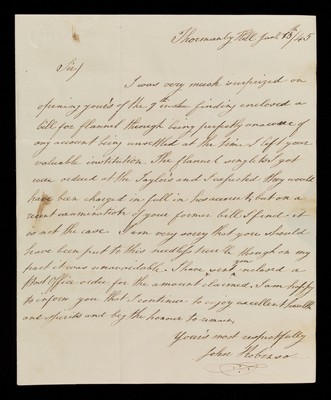 Thormanby Hill Jan 13th/45
Sir/
I was very much surprized on
opening your's of the 9th inst finding enclosed a
bill for flannel through being perfectly unaware of
any account being unsettled at the time I left your
valuable institution. The flannel singlets I got
were ordered at the Taylors and I expected they would
have been charged in full in his account, but on a
recent examination of your former bill I find it
is not the case. I am very sorry that you should
have been put to this needless trouble though on my
part it was unavoidable. I have sent you inclosed a
Post Office order for the amount claimed. I am happy
to inform you that I continue to enjoy excellent health
and spirits and beg the honour to remain
Your's most respectfully
John Robinson